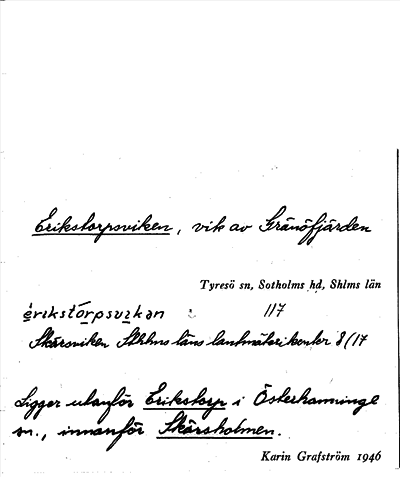 Erikstorpsviken, vik av Gränöfjärden
Tyresö sn, Sotholms hd, Shlms län
erikstorpsvikan : 117
Skärsviken Sthlms läns lantmäterikontor 8/17
Ligger utanför Erikstorp i Österhanninge
sn., innanför Skärsholmen.
Karin Grafström 1946